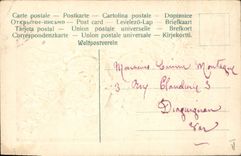 Carte postale — Postkarte — Cartolina postale — Dopisnice
Открытое письмо — Post card — Levelező-Lap — Briefkaart
Tarjeta postal — Union postale universelle — Brefkort
Correspondenzkarte — Union postale universelle — Kirjekortti
Weltpostverein
Monsieur Montagne
3 Rue 3
Draguignan
Var